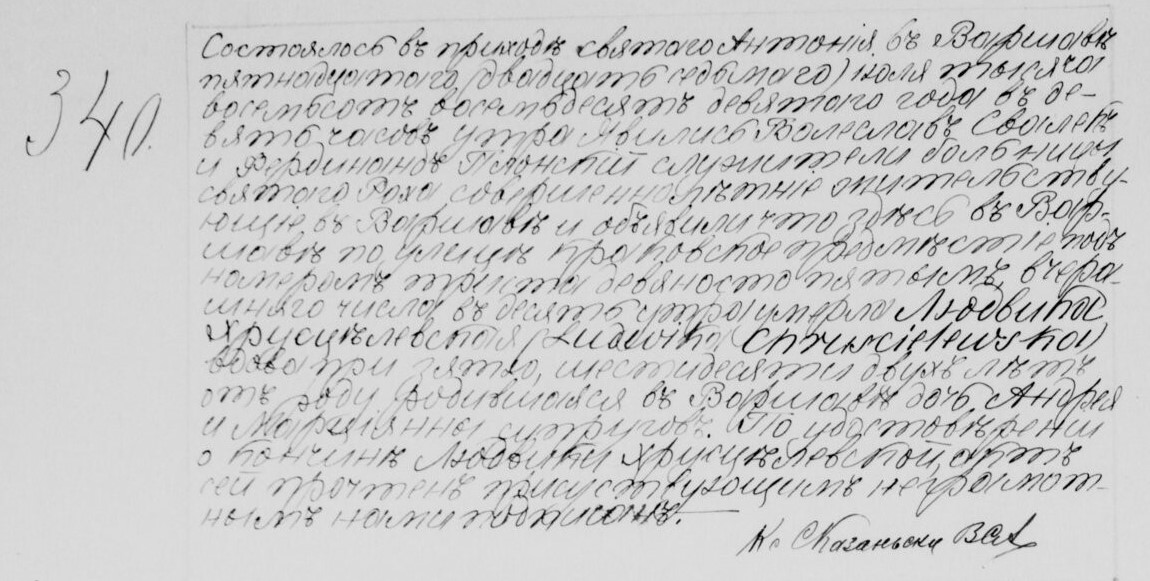 340.
Состоялось въ приходѣ святаго Антонія въ Варшавѣ
пятнадцатаго (двадцать седьмаго) Іюля тысяча
восемьсотъ восемьдесятъ девятаго года въ де-
вять часовъ утра. Явились Болеславъ
и Фердинандъ Плонскій служители больницы
святаго Роха совершеннолѣтніе жительству-
ющіе въ Варшавѣ и объявили что здѣсь въ Вар-
шавѣ по улицѣ Краковское предмѣстіе подъ
номеромъ триста девяносто пятымъ, вчера-
шняго числа въ десять утра умерла Людвика
Хрусцѣлевская (Ludwika Chruścielewska)
вдова при зятю, шестидесяти двухъ лѣтъ
отъ роду родившаяся въ Варшавѣ дочь Андрея
и Марціянны супруговъ. По удостовѣреніи
о кончинѣ Людвики Хрусцѣлевской, актъ
сей прочтенъ присутствующимъ неграмот-
нымъ нами подписанъ.
Кс